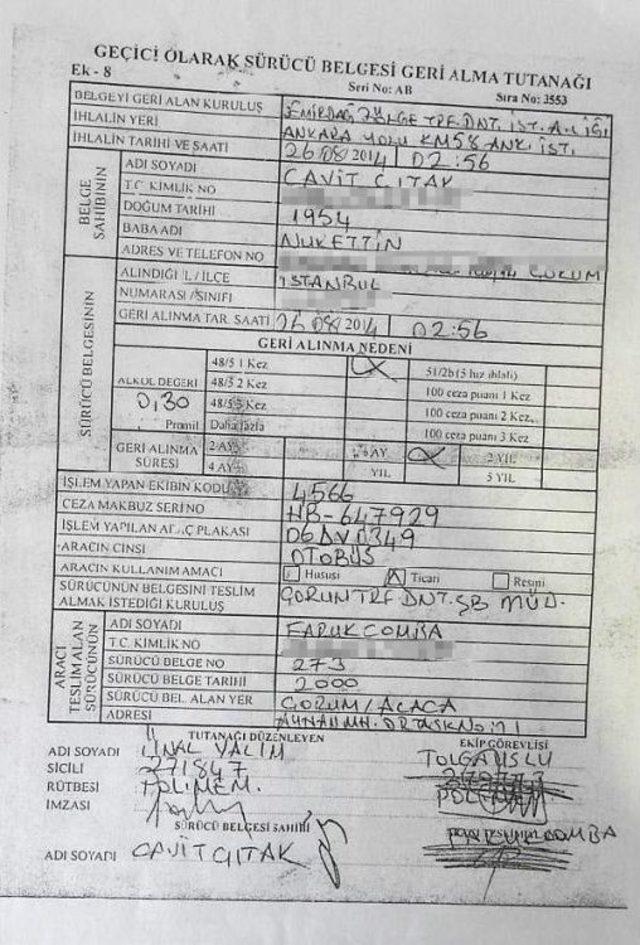 GEÇİCİ OLARAK SÜRÜCÜ BELGESİ GERİ ALMA TUTANAĞI
Ek - 8 Seri No: AB Sıra No: 3553
BELGEYİ GERİ ALAN KURULUŞ EMİRDAĞ BÖLGE TRF. DNT. İST. A.LİĞİ
İHLALİN YERİ ANKARA YOLU KM58 ANK. İST.
İHLALİN TARİHİ VE SAATİ 26/08/2014 02:56
BELGE SAHİBİNİN
ADI SOYADI CAVİT ÇITAK
T.C. KİMLİK NO
DOĞUM TARİHİ 1954
BABA ADI NURETTİN
ADRES VE TELEFON NO ÇORUM
SÜRÜCÜ BELGESİNİN
ALINDIĞI İL / İLÇE İSTANBUL
NUMARASI / SINIFI
GERİ ALINMA TAR. SAATİ 26/08/2014 02:56
GERİ ALINMA NEDENİ
ALKOL DEĞERİ 0,30 Promil
48/5 1 Kez 51/2b (5 hız ihlali)
48/5 2 Kez 100 ceza puanı 1 Kez
48/5 3 Kez 100 ceza puanı 2 Kez
Daha fazla 100 ceza puanı 3 Kez
GERİ ALINMA SÜRESİ
2 AY 6 AY 2 YIL
4 AY YIL 5 YIL
İŞLEM YAPAN EKİBİN KODU 4566
CEZA MAKBUZ SERİ NO HB-647929
İŞLEM YAPILAN ARAÇ PLAKASI 06 AV 0349
ARACIN CİNSİ OTOBÜS
ARACIN KULLANIM AMACI Hususi Ticari Resmi
SÜRÜCÜNÜN BELGESİNİ TESLİM ALMAK İSTEDİĞİ KURULUŞ ÇORUM TRF. DNT. ŞB MÜD.
ARACI TESLİM ALAN SÜRÜCÜNÜN
ADI SOYADI FARUK COMBA
T.C. KİMLİK NO
SÜRÜCÜ BELGE NO 273
SÜRÜCÜ BELGE TARİHİ 2000
SÜRÜCÜ BEL. ALAN YER ÇORUM/ALACA
ADRESİ
TUTANAĞI DÜZENLEYEN EKİP GÖREVLİSİ
ADI SOYADI ÜNAL YALIM TOLGA USLU
SİCİLİ 271847
RÜTBESİ POL. MEM.
İMZASI
SÜRÜCÜ BELGESİ SAHİBİ
ADI SOYADI CAVİT ÇITAK FARUK COMBA